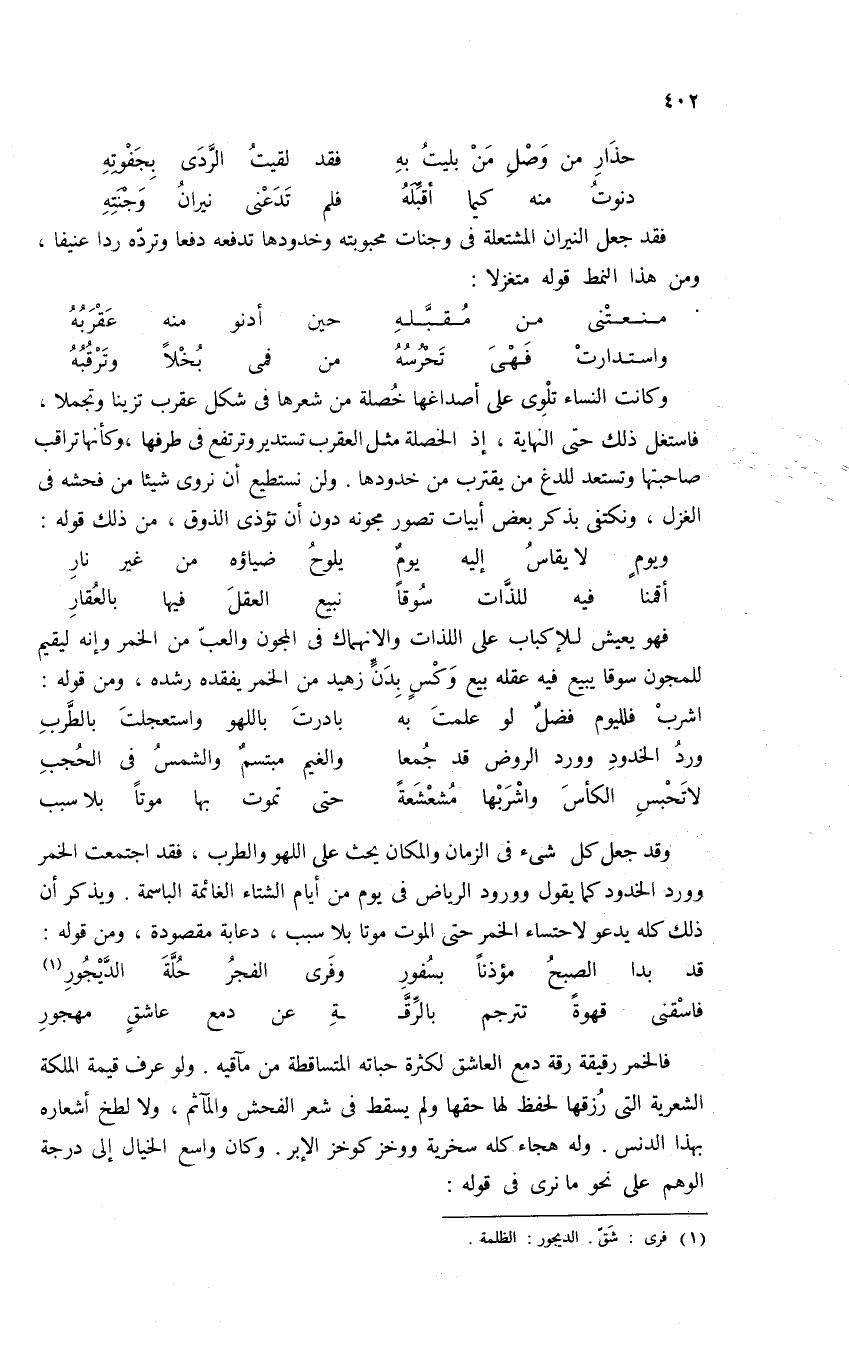 ٤٠٢
حذَارِ من وَصْلِ مَنْ بليتُ بهِ فقد لقيتُ الرَّدَى بِجَفْوتِهِ
دنوتُ منه كيما أقبِّلَهُ فلم تَدَعْنى نيرانُ وَجْنَتِهِ
فقد جعل النيران المشتعلة فى وجنات محبوبته وخدودها تدفعه دفعا وتردّه ردا عنيفا ،
ومن هذا النمط قوله متغزلا :
منعتْنى من مُقبَّلهِ حين أدنو منه عَقْرَبُهُ
واستدارتْ فَهْىَ تَحْرُسُهُ من فمى بُخْلاً وتَرْقُبُهُ
وكانت النساء تلْوِى على أصداغها خُصلة من شعرها فى شكل عقرب تزينا وتجملا ،
فاستغل ذلك حتى النهاية ، إذ الخصلة مثل العقرب تستدير وترتفع فى طرفها ، وكأنها تراقب
صاحبتها وتستعد للدغ من يقترب من خدودها . ولن نستطيع أن نروى شيئا من فحشه فى
الغزل ، ونكتفى بذكر بعض أبيات تصور مجونه دون أن تؤذى الذوق ، من ذلك قوله :
ويومٍ لا يقاسُ إليه يومٌ يلوحُ ضياؤه من غير نارِ
أقمنا فيه للذَّات سُوقاً نبيع العقلَ فيها بالعُقارِ
فهو يعيش للإكباب على اللذات والانهماك فى المجون والعبّ من الخمر وإنه ليقيم
للمجون سوقا يبيع فيه عقله بيع وَكْسٍ بِدَنٍّ زهيد من الخمر يفقده رشده ، ومن قوله :
اشربْ فلليوم فضلٌ لو علمتَ به بادرتَ باللهو واستعجلتَ بالطَّربِ
وردُ الخدودِ وورد الروض قد جُمعا والغيم مبتسمٌ والشمسُ فى الحُجبِ
لاتَحْبسِ الكأسَ واشْرَبْها مُشَعْشَعةً حتى تموت بها موتاً بلا سبب
وقد جعل كل شىء فى الزمان والمكان يحث على اللهو والطرب ، فقد اجتمعت الخمر
وورد الخدود كما يقول وورود الرياض فى يوم من أيام الشتاء الغائمة الباسمة . ويذكر أن
ذلك كله يدعو لاحتساء الخمر حتى الموت موتا بلا سبب ، دعابة مقصودة ، ومن قوله :
قد بدا الصبحُ مؤذناً بسُفورِ وفَرى الفجرُ حُلَّةَ الدَّيْجُورِ(١)
فاسْقنى قهوةً تترجم بالرِّقَّـ ـةِ عن دمع عاشقٍ مهجورِ
فالخمر رقيقة رقة دمع العاشق لكثرة حباته المتساقطة من مآقيه . ولو عرف قيمة الملكة
الشعرية التى رُزقها لحفظ لها حقها ولم يسقط فى شعر الفحش والمآثم ، ولا لطخ أشعاره
بهذا الدنس . وله هجاء كله سخرية ووخز كوخز الإبر . وكان واسع الخيال إلى درجة
الوهم على نحو ما نرى فى قوله :
(١) فرى : شَقّ . الديجور : الظلمة .